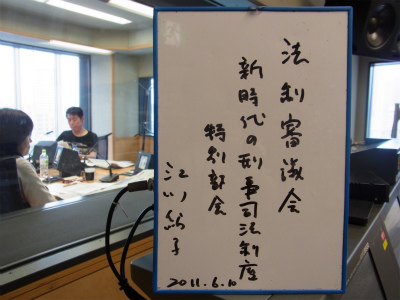 法制審議会
新時代の刑事司法制度
特別部会
江川紹子
2011.6.10